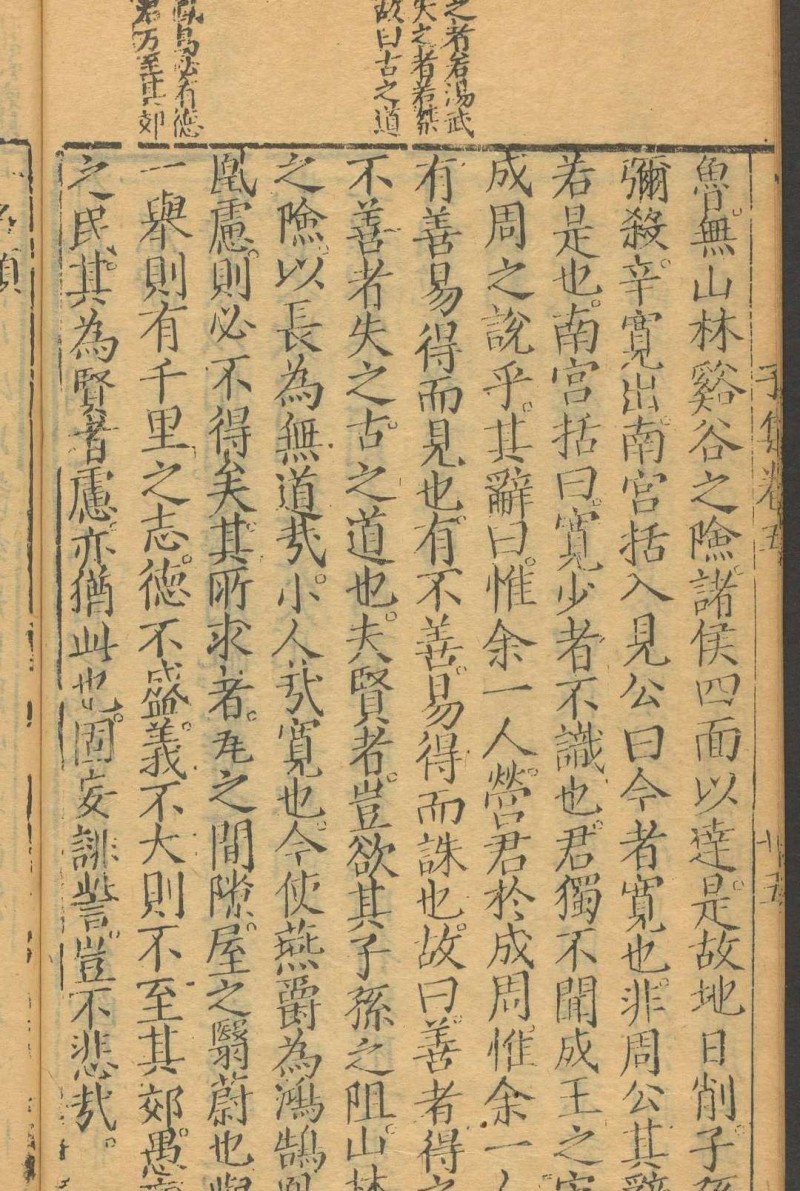 之者若湯武
失之者若桀
故曰古之道
鳥必有德
至其郊
子集卷五
魯無山林谿谷之險諸侯四面以達是故地日削子孫
彌殺辛寬出南宮括入見公曰今者寬也非周公其辭
若是也南宮括曰寬少者不識也君獨不聞成王之定
成周之說乎其辭曰惟余一人營君於成周惟余一人
有善易得而見也有不善易得而誅也故曰善者得之
不善者失之古之道也夫賢者豈欲其子孫之阻山林
之險以長為無道㢤小人㢤寬也今使燕爵為鴻鵠鳳
凰慮則必不得矣其所求者瓦之間隙屋之翳蔚也與
一舉則有千里之志德不盛義不大則不至其郊愚
之民其為賢者慮亦猶此也固妄誹訾豈不悲㢤